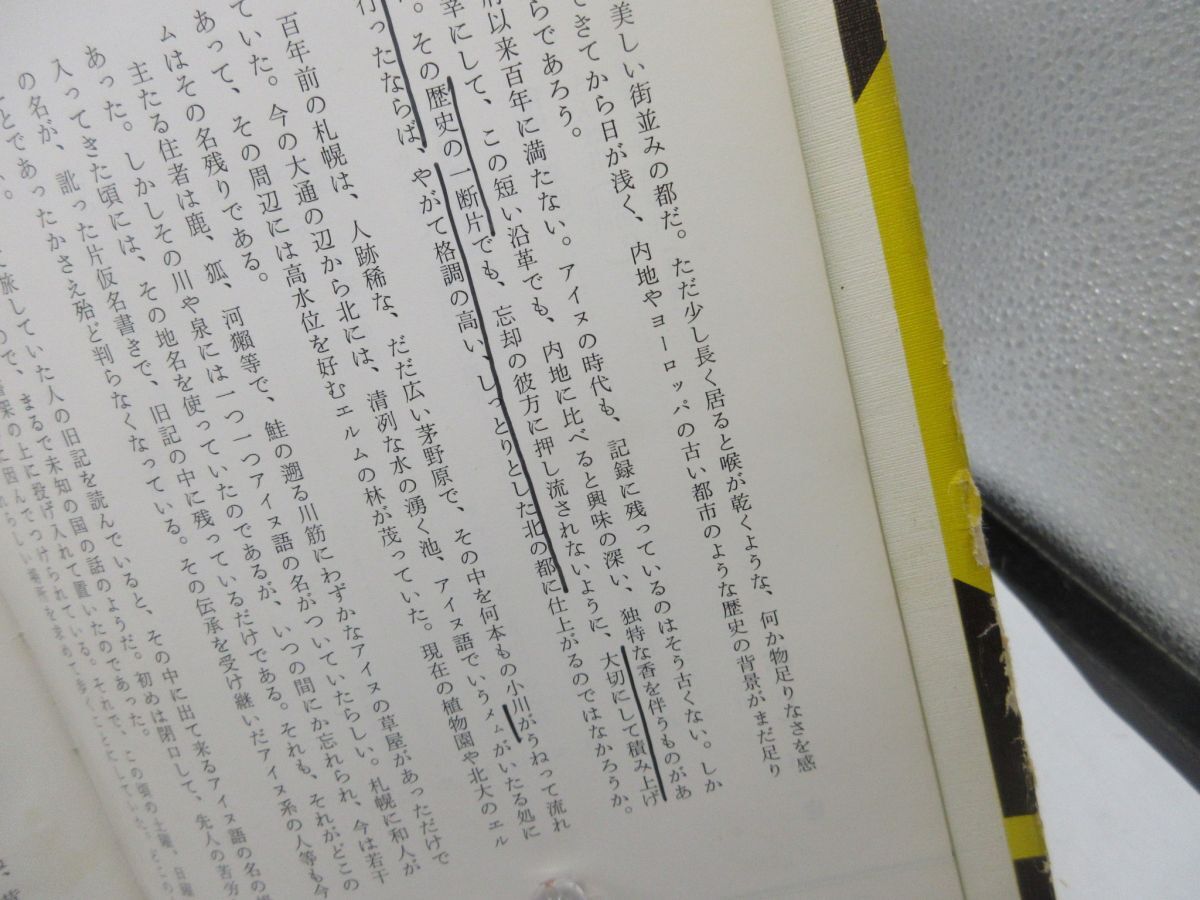 美しい街並みの都だ。ただ少し長く居ると喉が乾くような、何か物足りなさを感
できてから日が浅く、内地やヨーロッパの古い都市のような歴史の背景がまだ足り
らであろう。
以来百年に満たない。アイヌの時代も、記録に残っているのはそう古くない。しか
幸にして、この短い沿革でも、内地に比べると興味の深い、独特な香を伴うものがあ
。その歴史の一断片でも、忘却の彼方に押し流されないように、大切にして積み上げ
行ったならば、やがて格調の高い、しっとりとした北の都に仕上がるのではなかろうか。
百年前の札幌は、人跡稀な、だだ広い茅野原で、その中を何本もの小川がうねって流れ
ていた。今の大通の辺から北には、清冽な水の湧く池、アイヌ語でいうメムがいたる処に
あって、その周辺には高水位を好むエルムの林が茂っていた。現在の植物園や北大のエル
ムはその名残りである。
主たる住者は鹿、狐、河獺等で、鮭の遡る川筋にわずかなアイヌの草屋があっただけで
あった。しかしその川や泉には一つ一つアイヌ語の名がついていたらしい。札幌に和人が
入ってきた頃には、その地名を使っていたのであるが、いつの間にか忘れられ、今は若干
の名が、訛った片仮名書きで、旧記の中に残っているだけである。それも、それがどこの
ことであったかさえ殆ど判らなくなっている。その伝承を受け継いだアイヌ系の人等も今
旅していた人の旧記を読んでいると、その中に出て来るアイヌ語の名の
まるで未知の国の話のようだ。初めは閉口して、先人の苦労
の上に投げ入れて置いたのであった。この頃の土曜、日曜